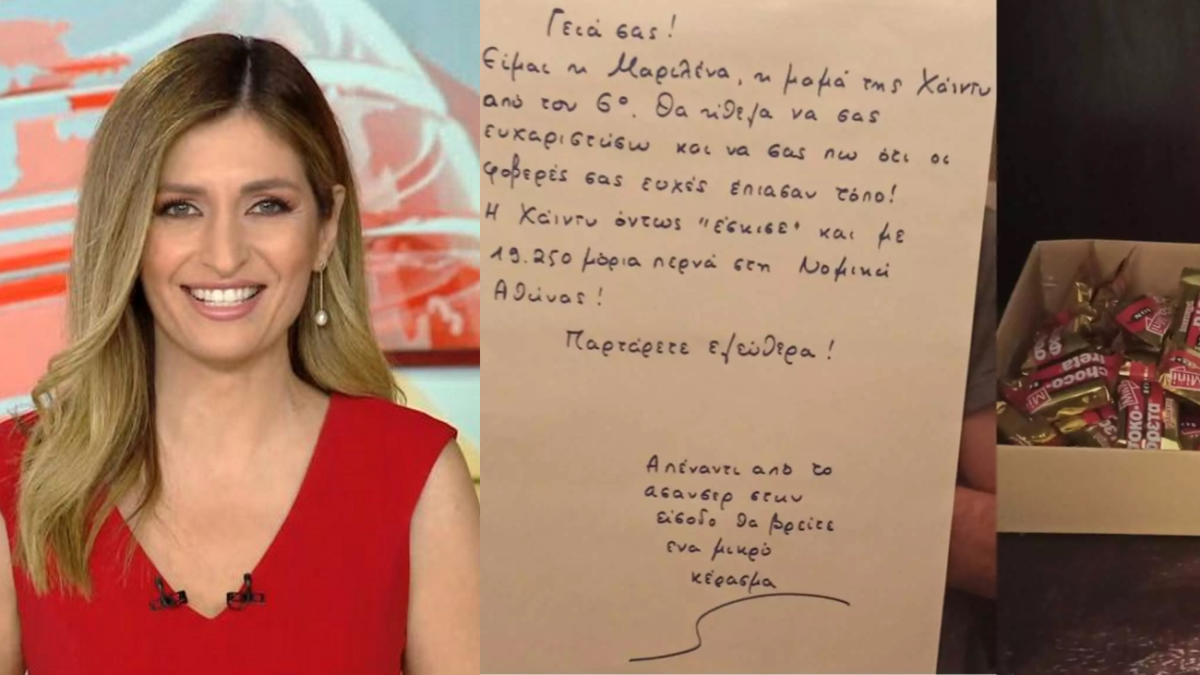 Γειά σας!
Είμαι η Μαριλένα, η μαμά της Χάιντυ
από τον 6º. Θα ήθελα να σας
ευχαριστώσω και να σας πω ότι οι
φοβερές σας ευχές έπιασαν τόπο!
Η Χάιντυ όντως "έσκισε" και με
19.250 μόρια περνά στη Νομική
Αθήνας!
Παρτάρετε ελεύθερα!
Απέναντι από το
ασανσερ στην
είσοδο θα βρείτε
ενα μικρό
κέρασμα
choco-
reta
Mini
ΣΟΚΟ-
ΦΡΕΤΑ